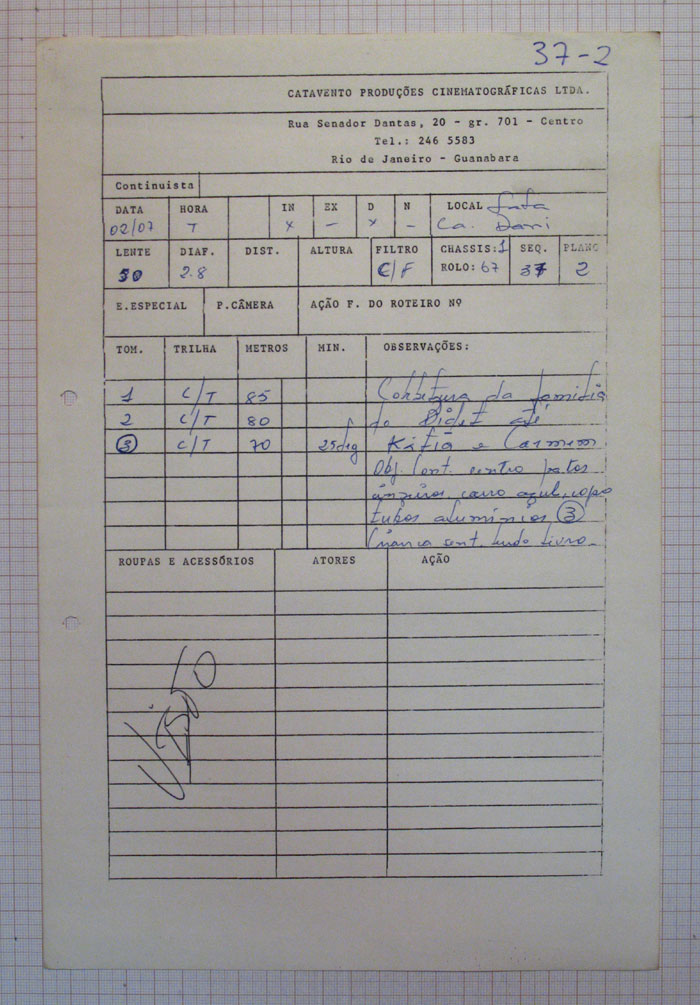 37-2
CATAVENTO PRODUÇÕES CINEMATOGRÁFICAS LTDA.
Rua Senador Dantas, 20 - gr. 701 - Centro
Tel.: 246 5583
Rio de Janeiro - Guanabara
Continuista
DATA HORA IN EX D N LOCAL
02/07 T X - X - Ca. Dani
LENTE DIAF. DIST. ALTURA FILTRO CHASSIS: 1 SEQ. PLANO
50 2.8 C/F ROLO: 67 37 2
E.ESPECIAL P.CÂMERA AÇÃO F. DO ROTEIRO Nº
TOM. TRILHA METROS MIN. OBSERVAÇÕES:
1 C/T 85 da familia
2 C/T 80 do até
3 C/T 70 25 Kátia e Carmem
Obj. cent. centro patos
carro azul, copo
tubos alumínios 3
Criança sent. lendo livro
ROUPAS E ACESSÓRIOS ATORES AÇÃO
VISTO